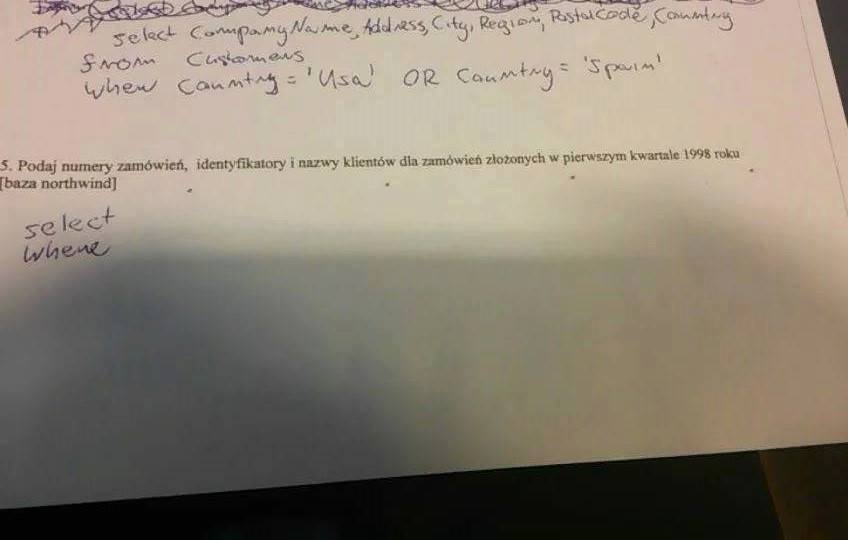 select CompanyName, Address, City, Region, PostalCode, Country
from Customers
when Country = 'Usa' OR Country = 'Spain'
5. Podaj numery zamówień, identyfikatory i nazwy klientów dla zamówień złożonych w pierwszym kwartale 1998 roku
[baza northwind]
select
where